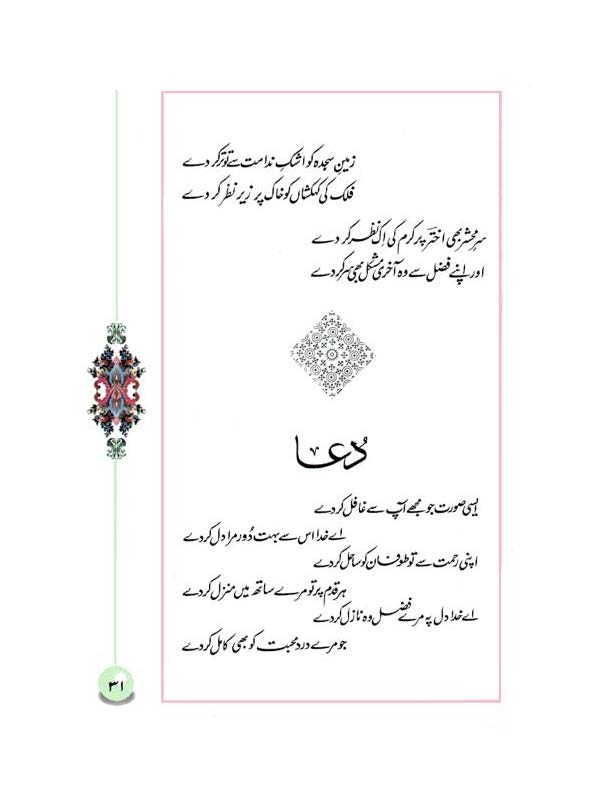 زمینِ سجدہ کو اشکِ ندامت سے تو تر کر دے
فلک کی کہکشاں کو خاک پر زیرِ نظر کر دے
سرِ محشر بھی اخترؔ پر کرم کی اِک نظر کر دے
اور اپنے فضل سے وہ آخری مشکل بھی سر کر دے
دُعا
ایسی صورت جو مجھے آپ سے غافل کر دے
اے خدا اس سے بہت دُور مرا دل کر دے
اپنی رحمت سے تو طوفان کو ساحل کر دے
ہر قدم پر تو مرے ساتھ میں منزل کر دے
اے خدا دل پہ مرے فضل وہ نازل کر دے
جو مرے دردِ محبت کو بھی کامل کر دے
۳۱